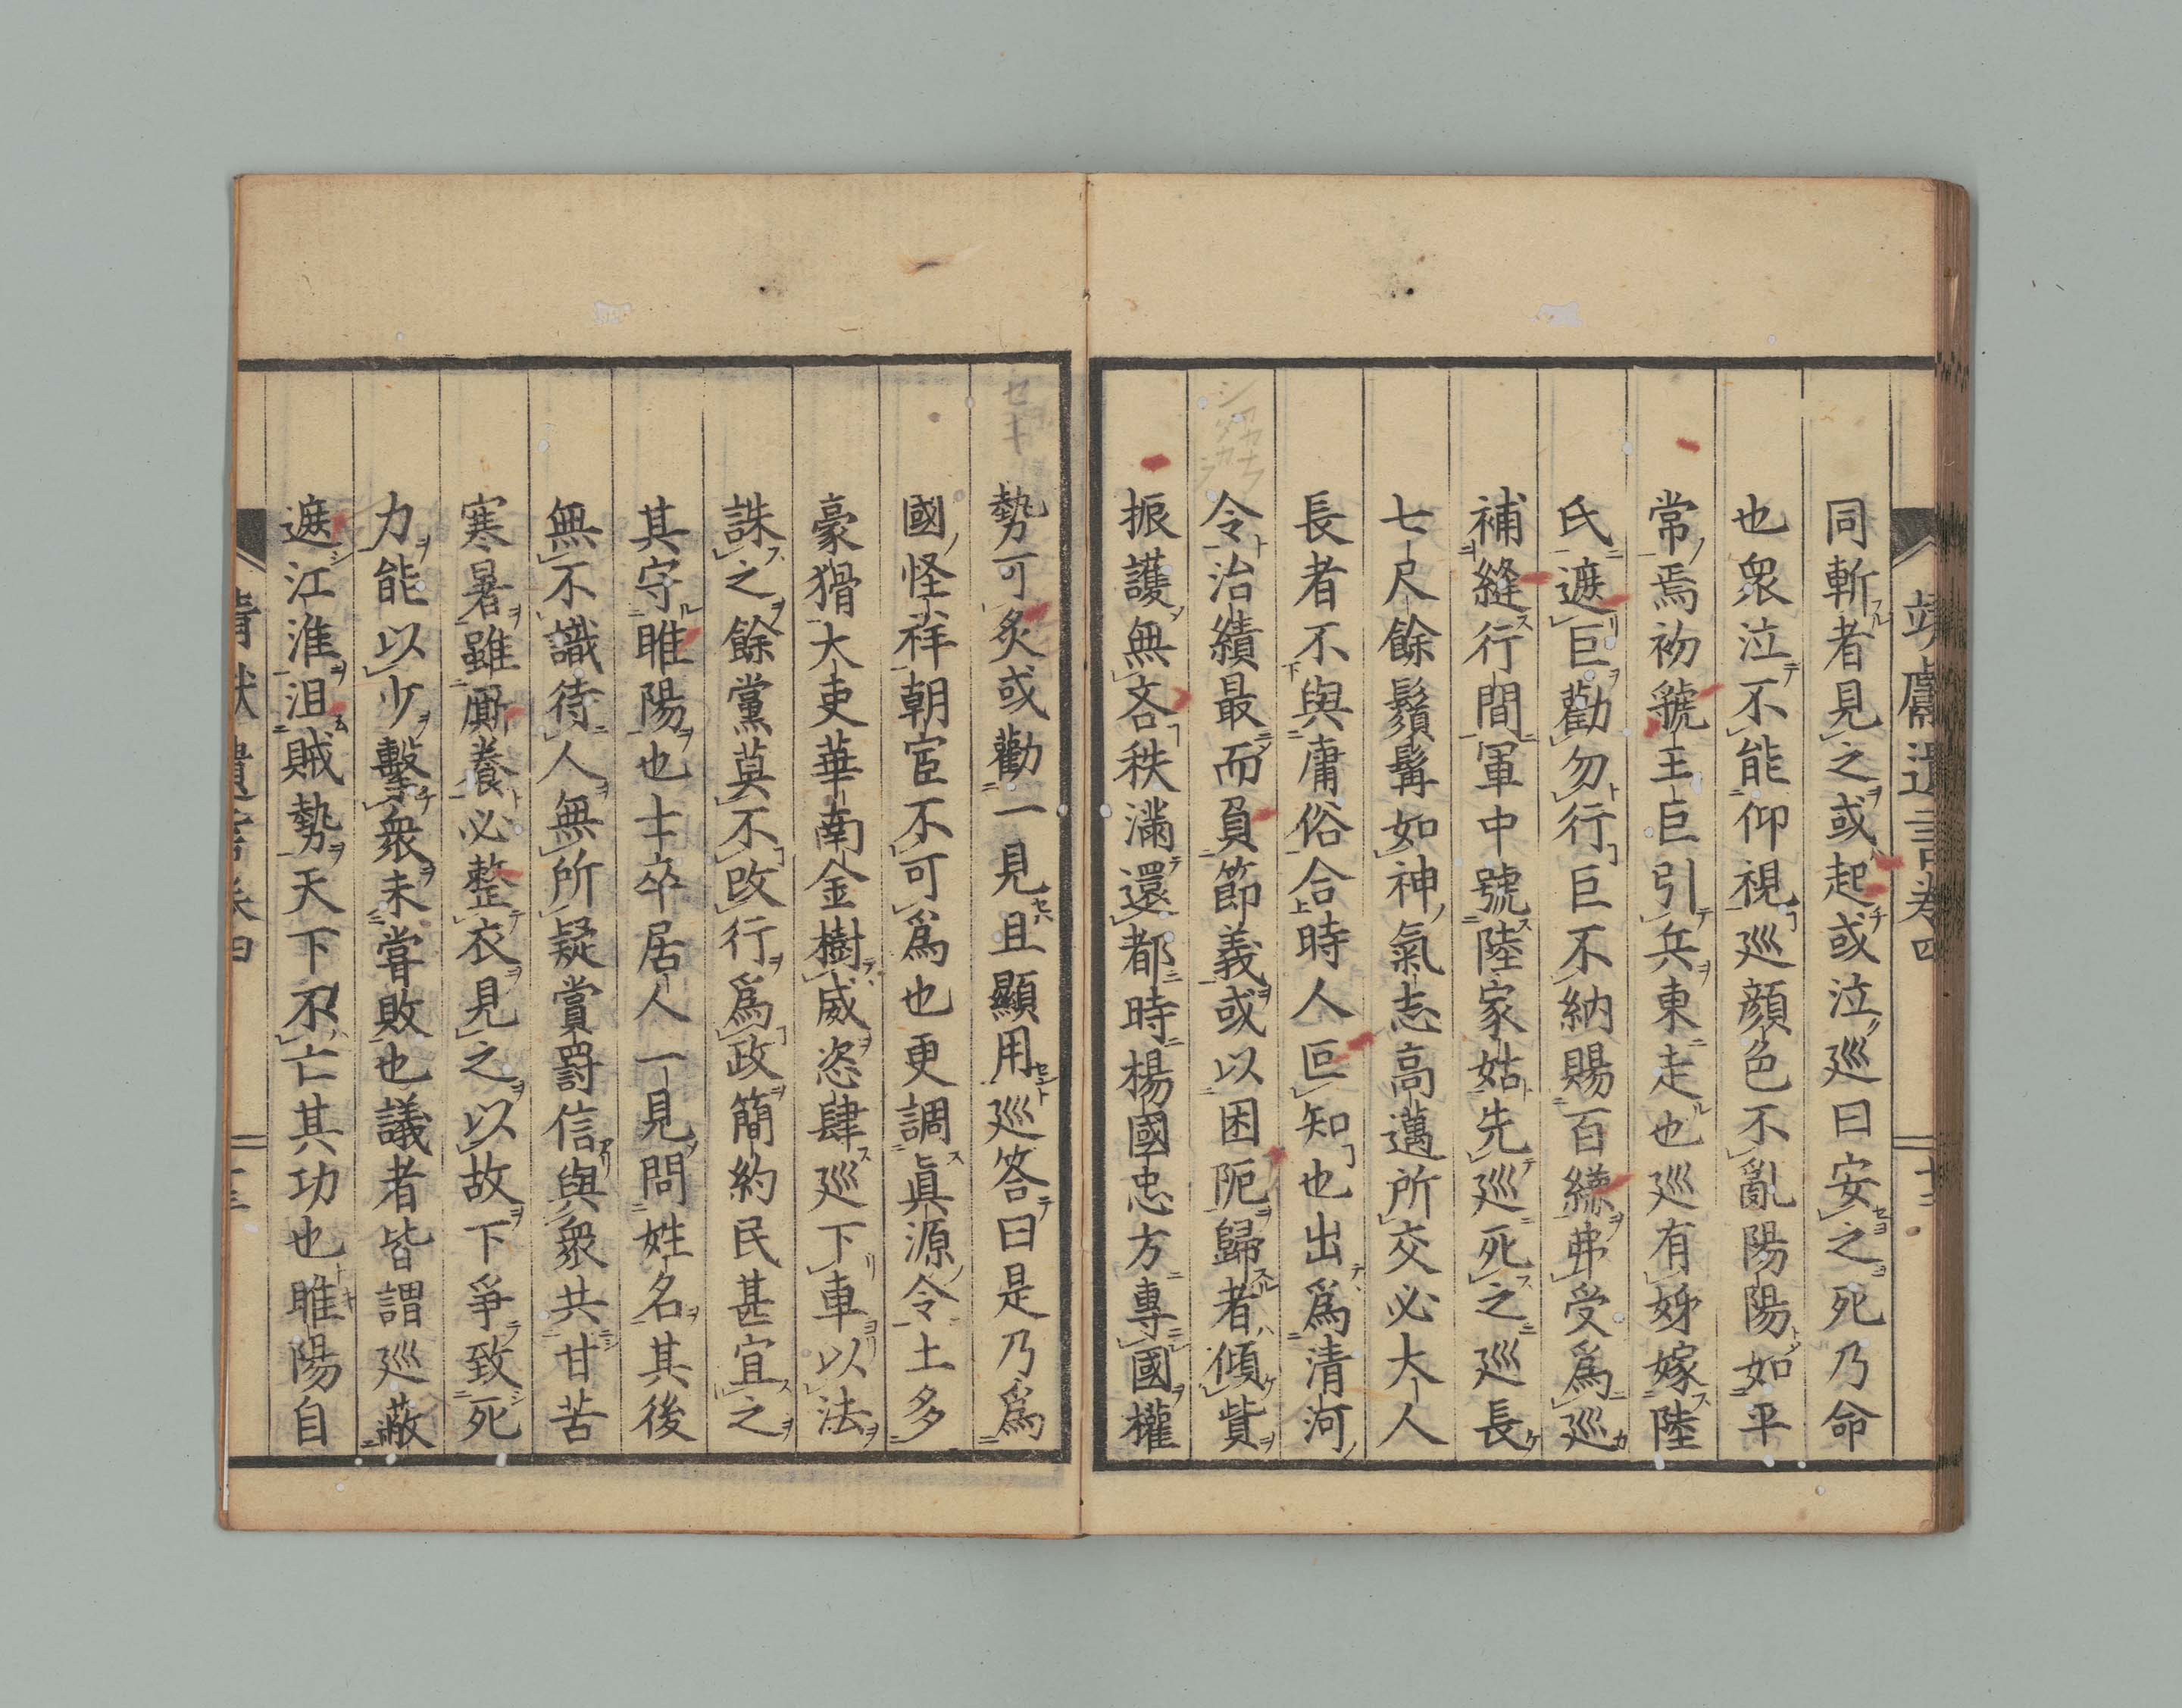 靖獻遺言卷四
同斬者見之或起或泣巡曰安之死乃命
也衆泣不能仰視巡顔色不亂陽陽如平
常焉初虢王巨引兵東走也巡有姊嫁陸
氏遮巨勸勿行巨不納賜百縑弗受爲巡
補縫行間軍中號陸家姑先巡死之巡長
七尺餘鬚髯如神氣志高邁所交必大人
長者不與庸俗合時人叵知也出爲清河
令治績最而負節義或以困阨歸者傾貲
振護無吝秩滿還都時楊國忠方專國權
勢可炙或勸一見且顯用巡答曰是乃爲
國怪祥朝宦不可爲也更調眞源令土多
豪猾大吏華南金樹威恣肆巡下車以法
誅之餘黨莫不改行爲政簡約民甚宜之
其守睢陽也士卒居人一見問姓名其後
無不識待人無所疑賞罰信與衆共甘苦
寒暑雖厮養必整衣見之以故下爭致死
力能以少擊衆未嘗敗也議者皆謂巡蔽
遮江淮沮賊勢天下不亡其功也睢陽自